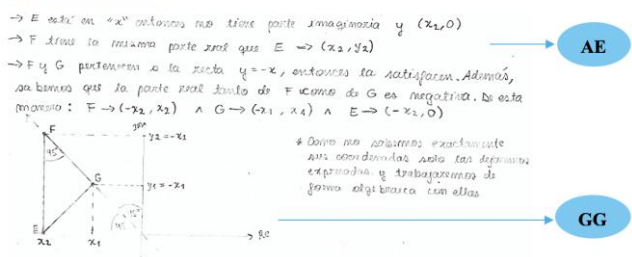 → E está en "x" entonces no tiene parte imaginaria y (x₂,0)
→ F tiene la misma parte real que E → (x₂,y₂)
AE
→ F y G pertenecen a la recta y=-x, entonces la satisfacen. Además,
sabemos que la parte real tanto de F como de G es negativa. De esta
manera: F → (-x₂, x₂) ∧ G → (-x₁, x₁) ∧ E → (-x₂,0)
Im
F
y₂=-x₁
45°
G
y₁=-x₁
* Como no sabemos exactamente
sus coordenadas solo las dejamos
expresadas y trabajaremos de
forma algebraica con ellas.
GG
45°
E
x₂
x₁
Re